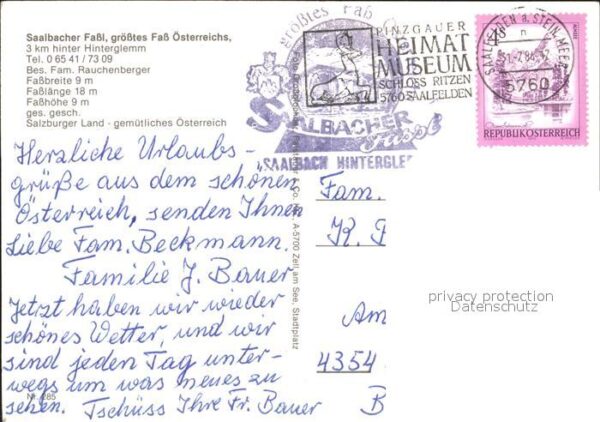 Saalbacher Faßl, größtes Faß Österreichs,
3 km hinter Hinterglemm
Tel. 0 65 41 / 73 09
Bes. Fam. Rauchenberger
Faßbreite 9 m
Faßlänge 18 m
Faßhöhe 9 m
ges. gesch.
Salzburger Land - gemütliches Österreich
größtes Faß
SAALBACHER
Fassl
SAALBACH HINTERGLE
PINZGAUER
HEIMAT
MUSEUM
SCHLOSS RITZEN
5760 SAALFELDEN
SAALFELDEN a. STEIN. MEER
5760
REPUBLIK ÖSTERREICH
A-5700 Zell am See, Stadtplatz
Herzliche Urlaubs-
grüße aus dem schönen
Österreich, senden Ihnen
liebe Fam. Beckmann.
Familie J. Bauer
Jetzt haben wir wieder
schönes Wetter, und wir
sind jeden Tag unter-
wegs um was neues zu
sehen. Tschüss Ihre Fr. Bauer
Fam.
K. F
Am
4354
B
privacy protection
Datenschutz